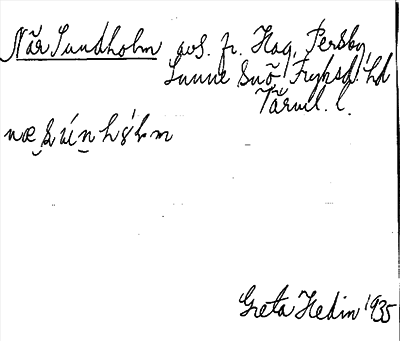 När Sundholm avs. fr. Hag, Persby,
Sunne Snö Fryksd. hd
Värml. l.
Greta Hedin 1935